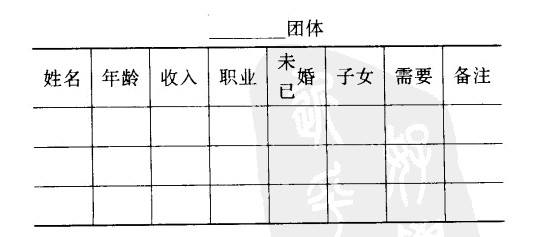 ________团体
姓名 年龄 收入 职业 未已婚 子女 需要 备注